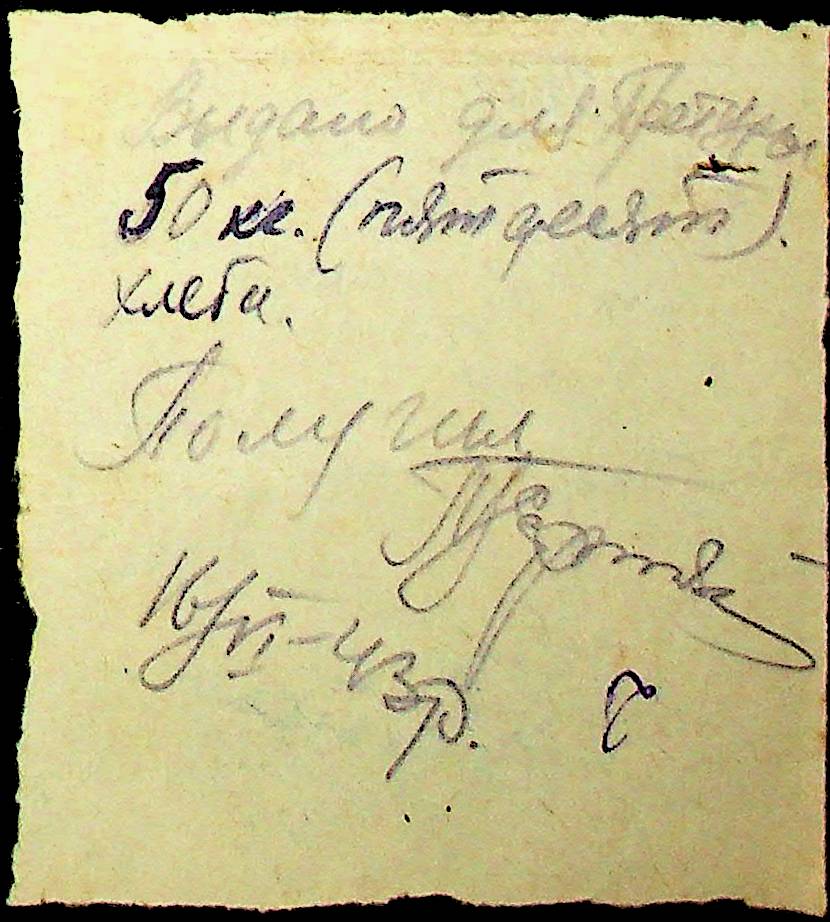 Выдано для
50 кг. (пятьдесят).
хлеба.
Получил
16/VI-43 р.